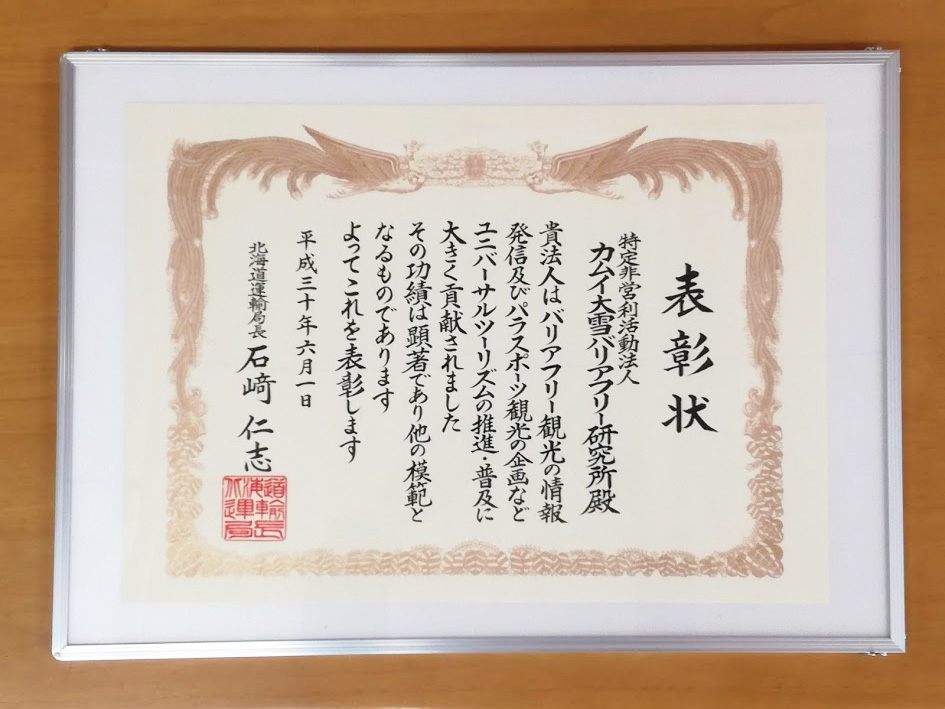 表彰状
特定非営利活動法人
カムイ大雪バリアフリー研究所殿
貴法人はバリアフリー観光の情報
発信及びパラスポーツ観光の企画など
ユニバーサルツーリズムの推進・普及に
大きく貢献されました
その功績は顕著であり他の模範と
なるものであります
よってこれを表彰します
平成三十年六月一日
北海道運輸局長 石﨑 仁志